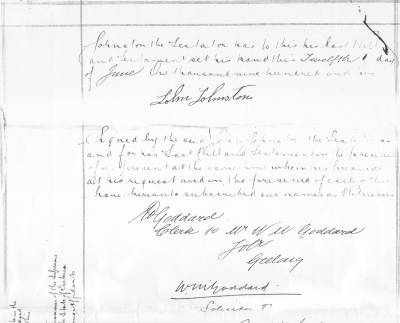 Johnston the Testator has to this his last Will
and Testament set his hand this Twelfth day
of June One thousand nine hundred and one
John Johnston
Signed by the said John Johnston the Testator as
and for his Last Will and Testament in the presence
of us present at the same time who in his presence
at his request and in the presence of each other
have hereunto subscribed our names as Witnesses
Goddard
Clerk to Mr W M Goddard
Solr
Geelong
W M Goddard
Solicitor